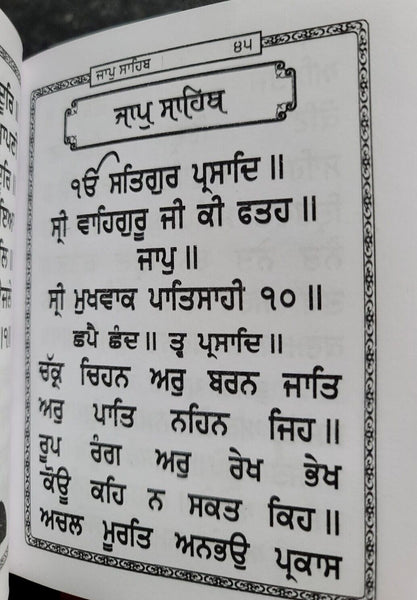 ਜਾਪੁ ਸਾਹਿਬ
੪੫
ਜਾਪੁ ਸਾਹਿਬ
ੴ ਸਤਿਗੁਰ ਪ੍ਰਸਾਦਿ ॥
ਸ੍ਰੀ ਵਾਹਿਗੁਰੂ ਜੀ ਕੀ ਫਤਹ ॥
ਜਾਪੁ ॥
ਸ੍ਰੀ ਮੁਖਵਾਕ ਪਾਤਿਸਾਹੀ ੧੦ ॥
ਛਪੈ ਛੰਦ ॥ ਤ੍ਵ ਪ੍ਰਸਾਦਿ ॥
ਚੱਕ੍ਰ ਚਿਹਨ ਅਰੁ ਬਰਨ ਜਾਤਿ
ਅਰੁ ਪਾਤਿ ਨਹਿਨ ਜਿਹ ॥
ਰੂਪ ਰੰਗ ਅਰੁ ਰੇਖ ਭੇਖ
ਕੋਊ ਕਹਿ ਨ ਸਕਤ ਕਿਹ ॥
ਅਚਲ ਮੂਰਤਿ ਅਨਭਉ ਪ੍ਰਕਾਸ